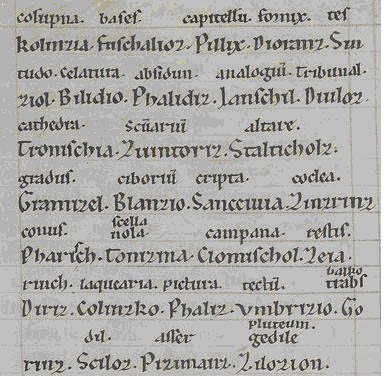 colupna. bases. capitellu fornix. tes
Kolinzia. Fuschalioz. Pillix. Dioranz. Sin
tudo. Celatura. absidun. analogiu. Tribunal.
ziol. Bilidio. Phalidiz. Lanschil. Diuloz.
cathedra. scuariu altare.
Tronischia. Zuintoriz. Stalticholz.
gradus. ciboriu cripta. coclea.
Gramizel. Blanzio. Sancciuia. Zinzrinz
scella
conus. nola. campana. restis.
Pharisch. Tonizma. Clomischol. Zeia.
balko
rinch. laquearia. pictura. tectu. trabs
Diriz. Colinzko. Phaliz. Vmbrizio. Go
pluteum.
dil. asser gedile
rinz. Sciloz. Pizimanz. Zilozion.